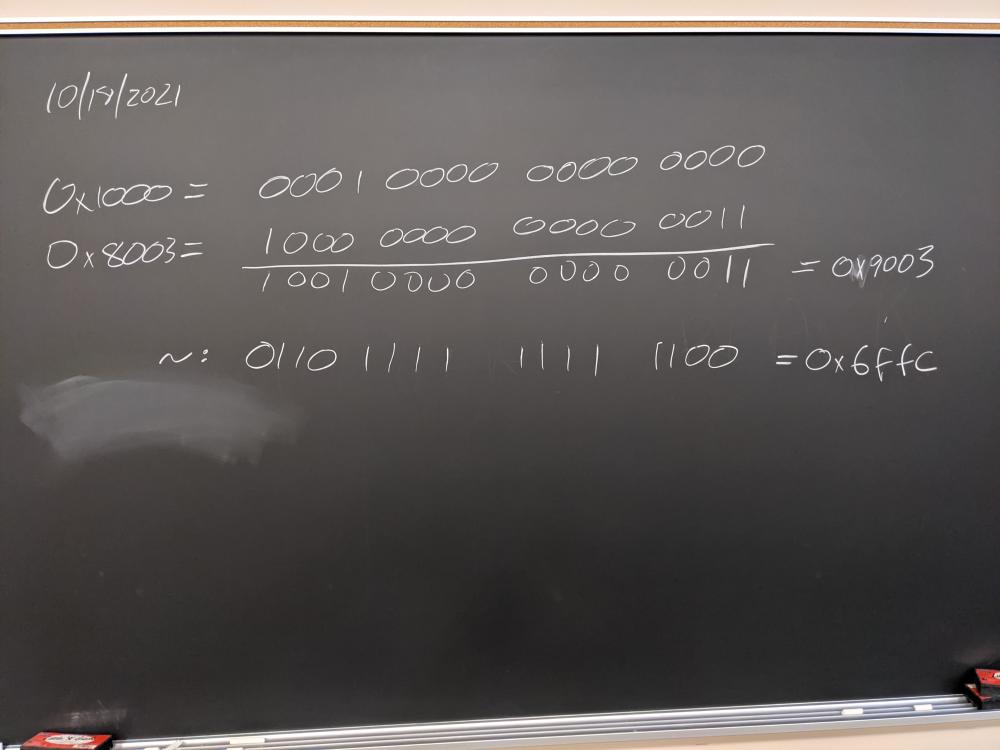 10/18/2021
0x1000 = 0001 0000 0000 0000
0x8003 = 1000 0000 0000 0011
1001 0000 0000 0011 = 0x9003
~: 0110 1111 1111 1100 = 0x6ffc